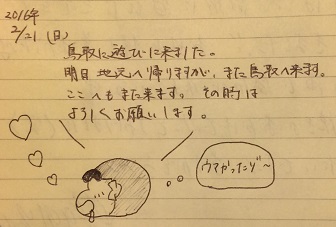 2016年
2/21(日)
鳥取に遊びに来ました。
明日 地元へ帰りますが、また鳥取へ来ます。
ここへもまた来ます。その時は
よろしくお願いします。
ウマかったゾ〜